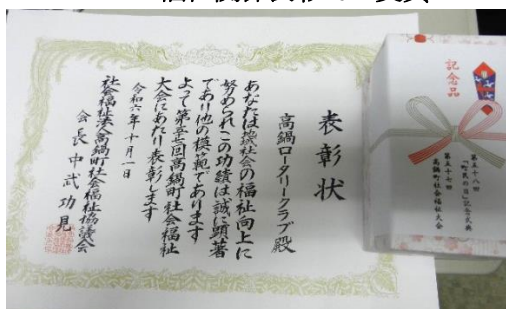 表彰状
高鍋ロータリークラブ殿
あなたは地域社会の福祉向上に
努められこの功績は誠に顕著
であり他の模範であります
よって第五十七回高鍋町社会福祉
大会にあたり表彰します
令和六年十月一日
社会福祉法人高鍋町社会福祉協議会
会長 中武功見
記念品
第五十八回
「町民の日」記念式典
第五十七回
高鍋町社会福祉大会